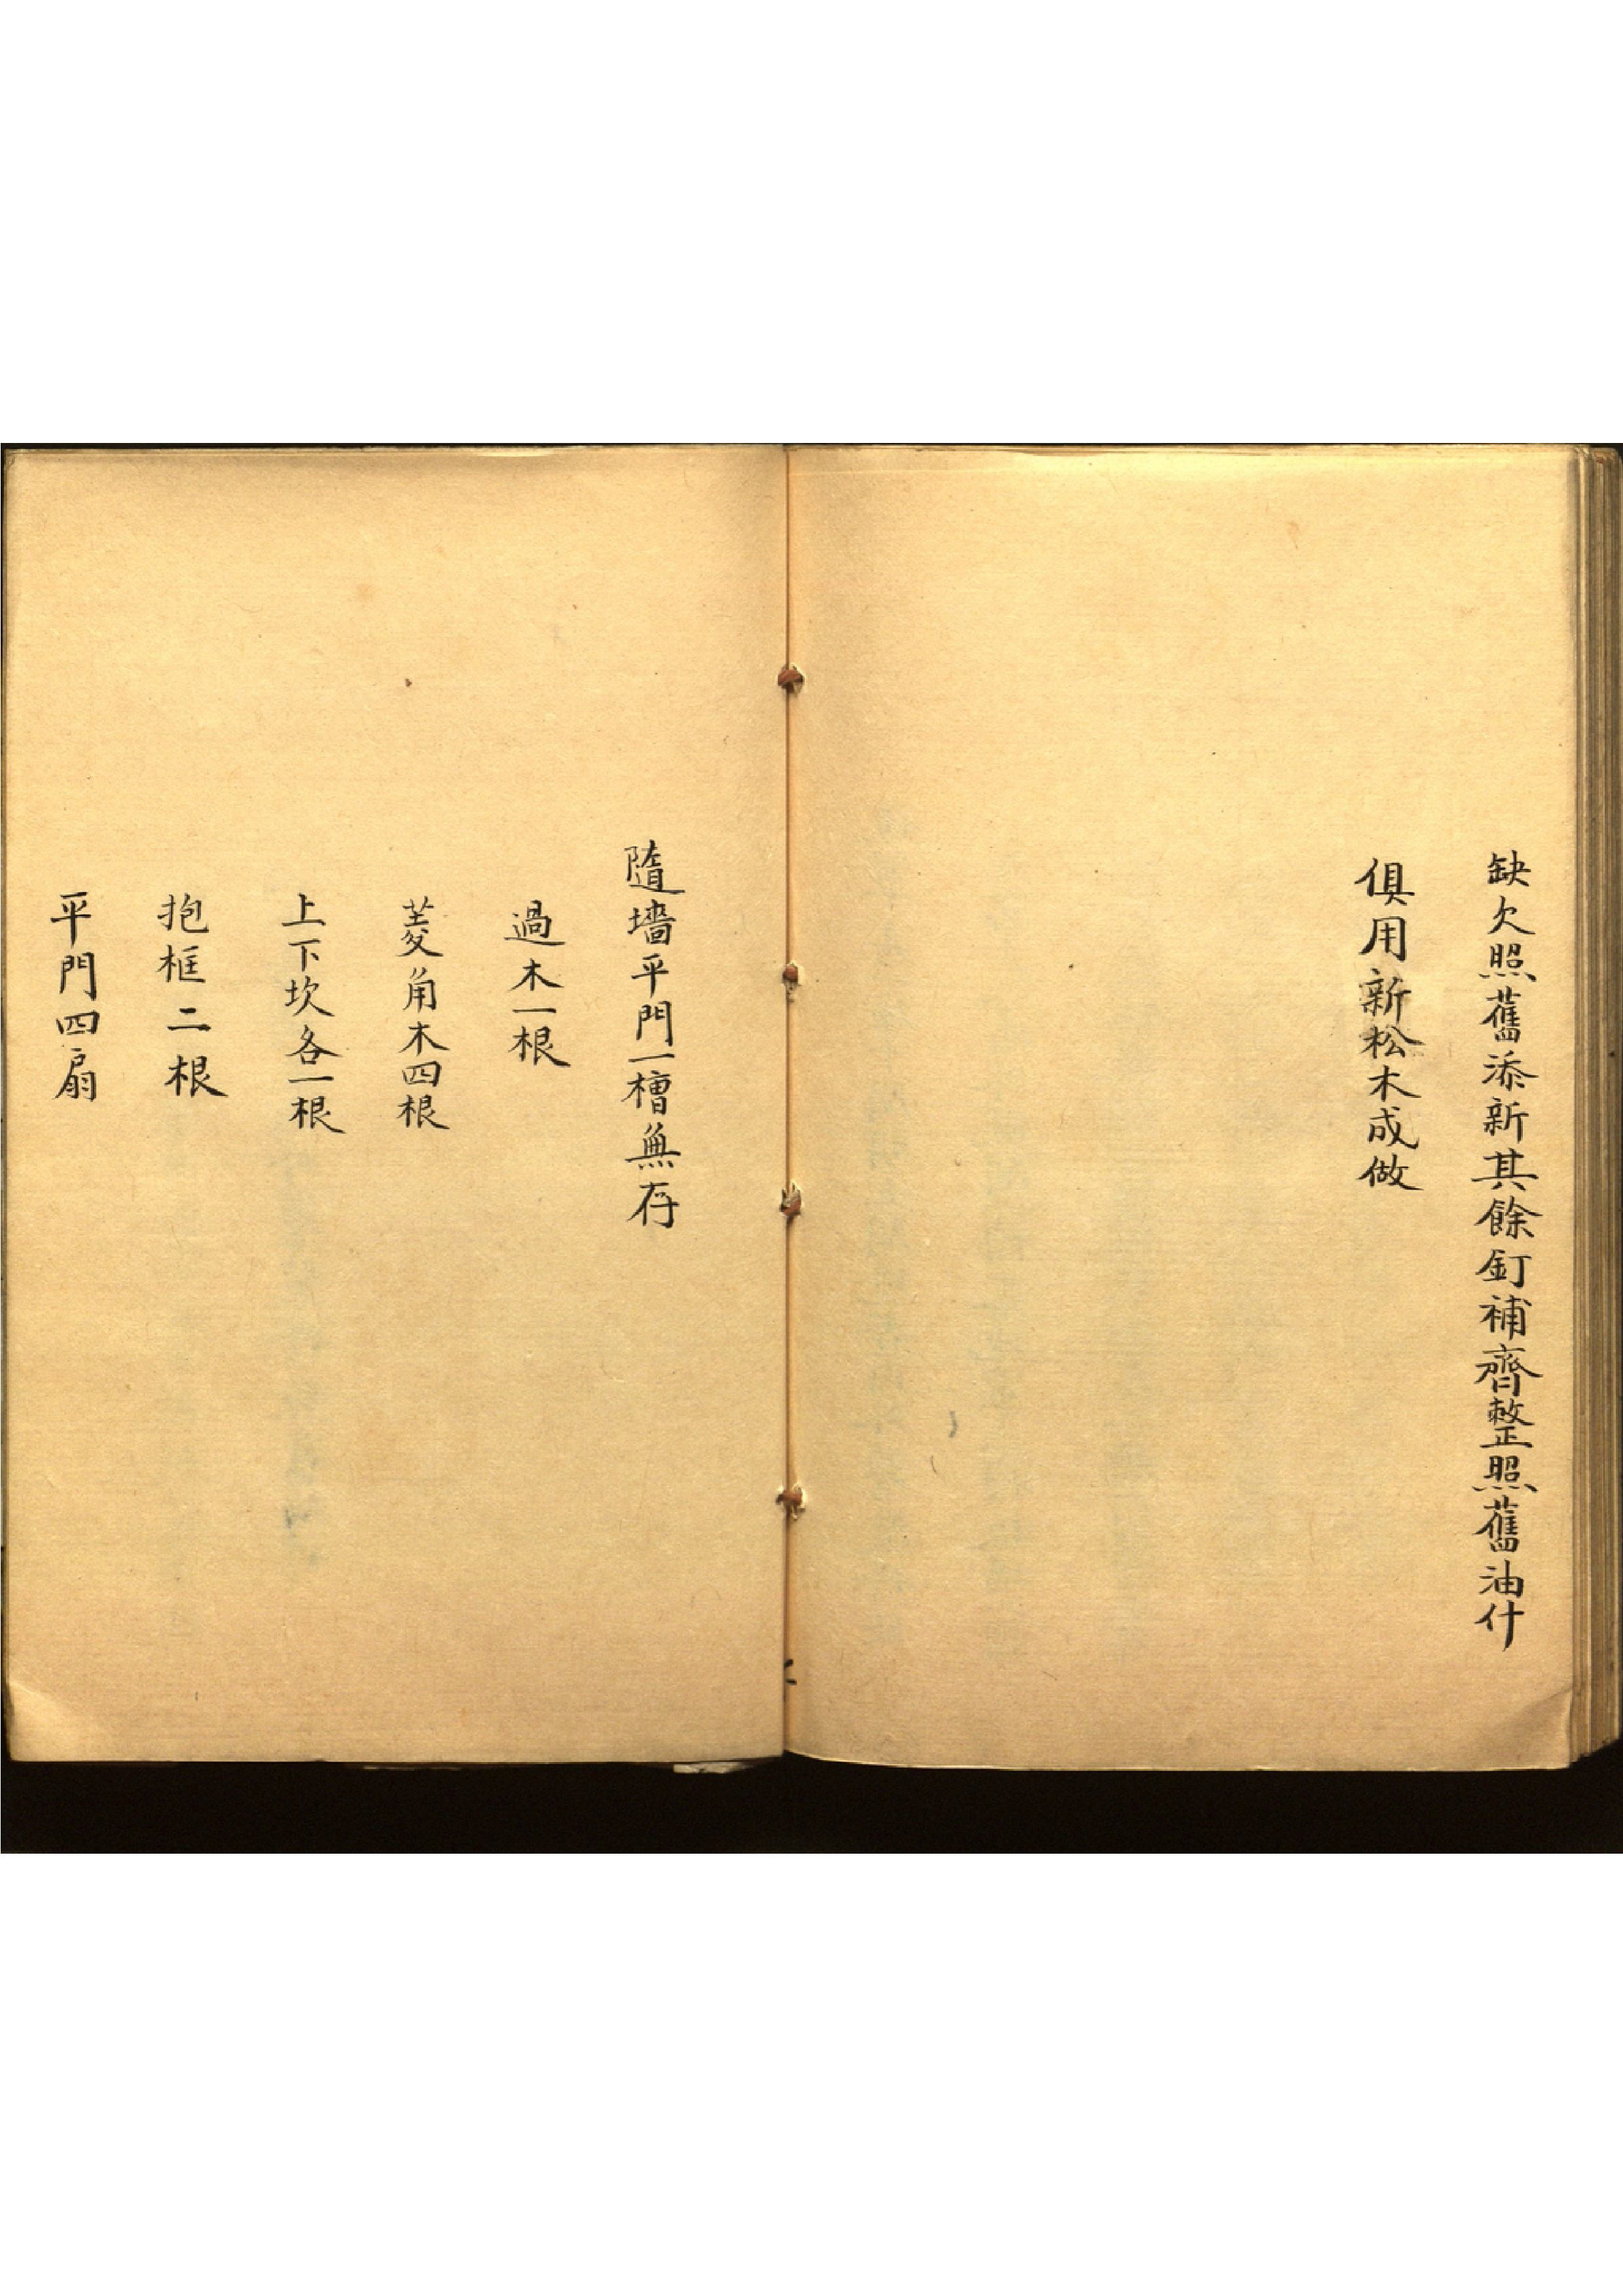 缺欠照舊添新其餘釘補齊整照舊油什
俱用新松木成做
隨墻平門一槽無存
過木一根
菱角木四根
上下坎各一根
抱框二根
平門四扇